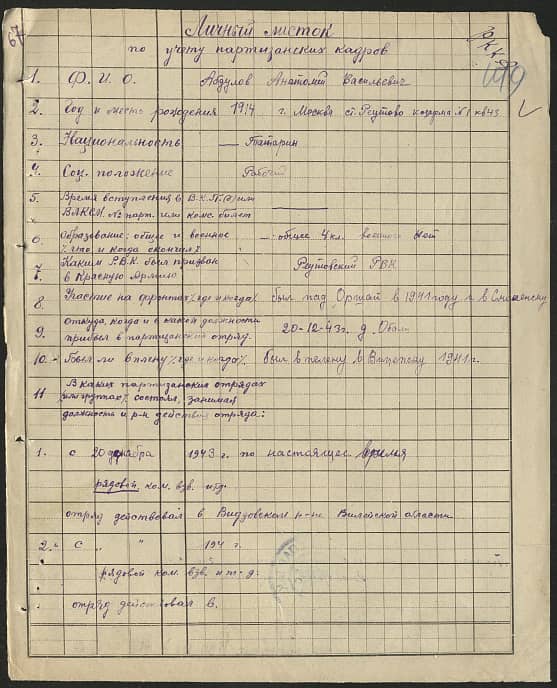 67
Личный листок
по учету партизанских кадров
1. Ф. И. О. Абдулов Анатолий Васильевич
2. Год и место рождения 1914 г. Москва ст. Реутово казарма №1 кв 43
3. Национальность — Татарин
4. Соц. положение Рабочий
5. Время вступления в В.К.П.(б) или
ВЛКСМ. № парт. или комс. билет
6. Образование: общее и военное — общее 4 кл. военного Нет
что и когда окончил
7. Каким Р.В.К. был призван Реутовский РВК
в Красную Армию
8. Участие на фронтах где и когда был под Оршай в 1941 году и в Смоленску
9. Откуда, когда и в какой должности 20-12-43г. д. Оболь
прибыл в партизанский отряд.
10. Был ли в плену где и когда был в плену в Витепску 1941 г.
11 В каких партизанских отрядах
или группах состоял, занимая
должность и р-н действия отряда:
1. с 20 декабря 1943 г. по настоящее время
рядовой ком. взв. и т.д.
отряд действовал в Видзовском р-не Вилейской области
2. с " " 194 г.
рядовой ком. взв. и т-д.
отряд действовал в.